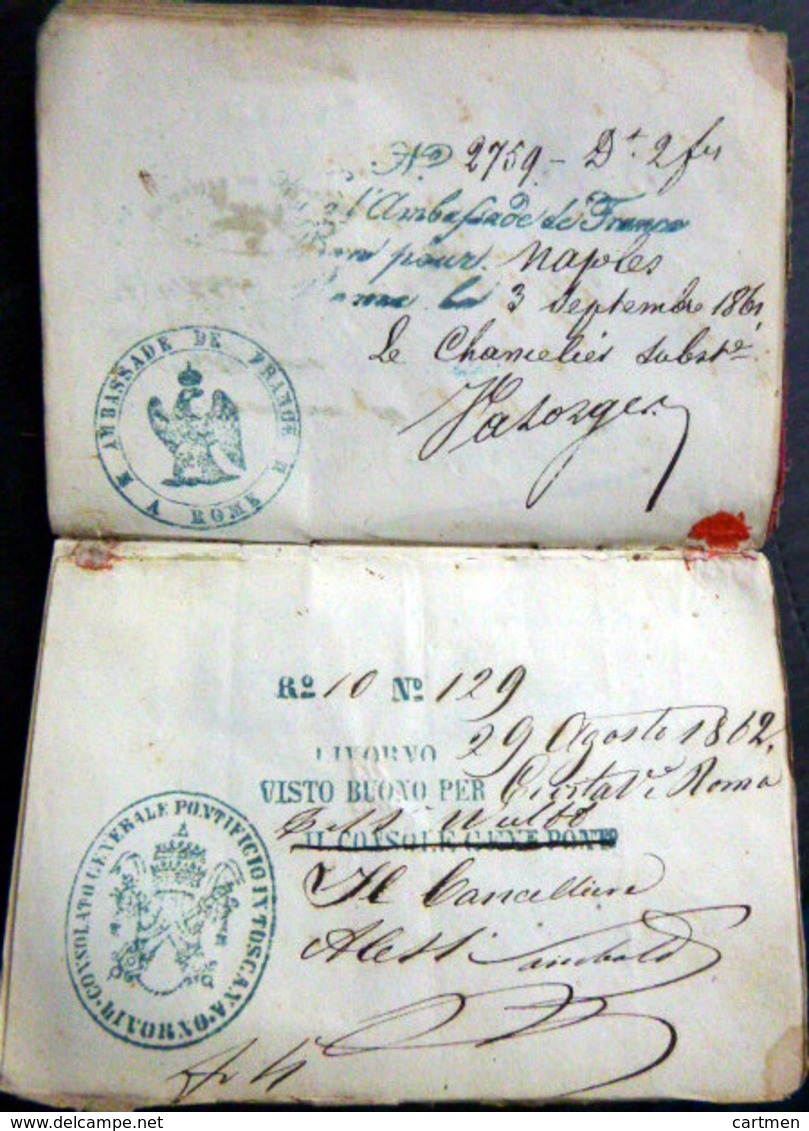 Nº 2759 - Dt. 2 frs
l'Ambassade de France
pour Naples
le 3 Septembre 1861
Le Chancelier substé
AMBASSADE DE FRANCE
A ROME
Rº 10 Nº 129
LIVORNO 29 Agosto 1862,
VISTO BUONO PER Civitava e Roma
IL CONSOLE GENE PONTO
Il Cancelliere
CONSOLATO GENERALE PONTIFICIO IN TOSCANA
LIVORNO
delcampe.net
cartmen